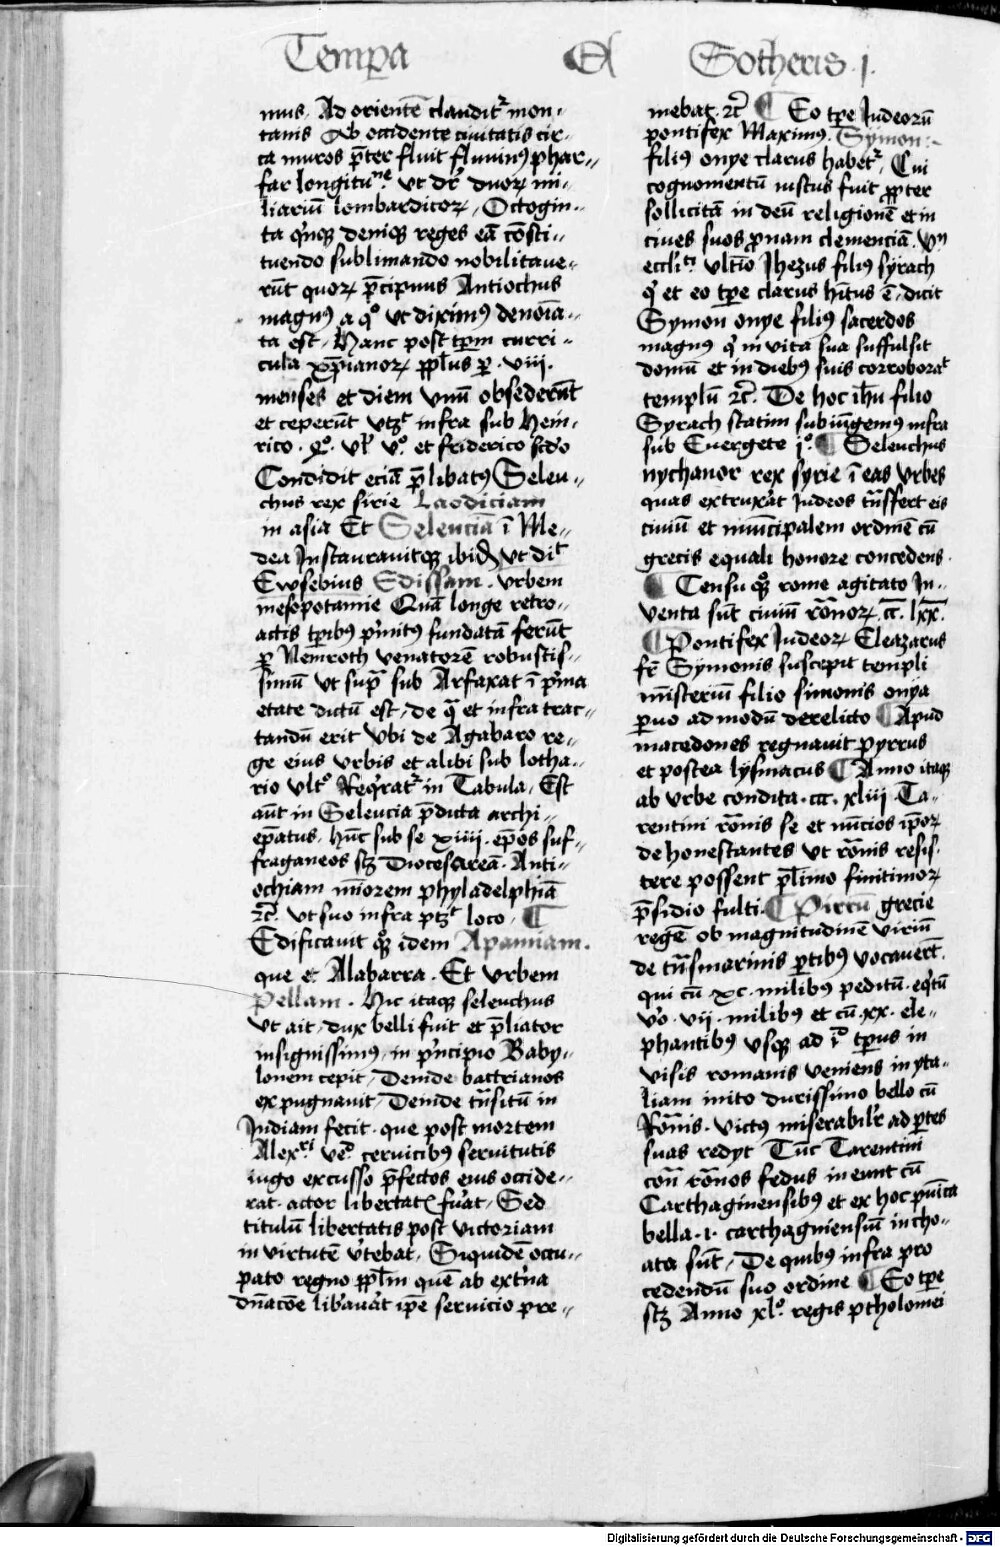 Tempa Et Sotheris .i.
mus. Ad orientē claudit᷑ mon-
tanis Ob occidente ciuitatis cir-
ca muros p̄ter fluit fluuiꝰ phar-
far longitu.ne Ut dr̄ duoꝝ mi-
liariū lombardicoꝝ, Octogin-
ta q̄nqꝫ deniqꝫ reges eā cōsti-
tuendo sublimando nobilitaue-
rūt quoꝝ p̄cipuus Antiochus
magnꝰ a qͦ vt diximꝰ denoīa-
ta est, Hanc post tp̄m curri-
cula xp̄ianoꝝ pp̄lus ꝑ .viii.
menses et diem vnū obsederūt
et ceperūt vtꝫ infra sub Hein-
rico .qͦ. vl̄ vͦ. et friderico scd̄o
Condidit eciā p̄libatꝰ Seleu-
chus rex sirie Laodiciam
in asia Et Seleuciā ī Me-
dea Instaurauitqꝫ ibidē vt dīt
Ewsebius Edissam. vrbem
mesopotamie Quā longe retro-
actis tp̄ibꝰ p̄mitꝰ fundatā ferūt
ꝑ Nemroth venatorē robustis-
simū vt sup̄ sub Arfaxat ī p̄ma
etate dictū est, de q̄ et infra trac-
tandū erit vbi de Agabaro re-
ge eius vrbis et alibi sub lotha-
rio vltͦ Req̄rat᷑ in Tabula, Est
aūt in Seleucia p̄dicta archi-
ep̄atus. hn̄t sub se xiiii. ep̄os suf-
fraganeos sꝫ Diocesareā. Anti-
ochiam mīorem phyladelphiā
ꝛc̄. vt suo infra ptꝫ loco. ¶
Edificauit qꝫ idem Apamiam.
que et Alabarra. Et vrbem
Pellam. Hic itaqꝫ seleuchus
vt ait, dux belli fuit et p̄liator
insignissimꝰ, in p̄ncipio Baby-
lonem cepit, Deinde bactrianos
expugnauit, Deinde tn̄situ in
Indiam fecit. que post mortem
Alex.ri veͦ ceruicibꝰ seruitutis
iugo excusso p̄fectos eius occide-
rat. actor libertatꝭ fuat, Sed
titulū libertatis post victoriam
in virtutē v̄tebat, Siquidē occu-
pato regno pp̄lm quē ab ext̄na
dn̄acōe lib̄auat ip̄e seruicio pre-
mebat. ꝛc̄ ¶ Eo tp̄e Iudeorū
pontifex Maximꝰ. Symon
filiꝰ onye clarus habet᷑, Cui
cognomentū iustus fuit ꝓpter
sollicitā in deū religionē et in
ciues suos ꝓnam clemenciā. Vn̄
eccli.ci vltīo Ihezus filiꝰ syrach
q̄ et eo tp̄e clarus hītus ē, dicit
Symon onye filiꝰ sacerdos
magnꝰ q̄ in vita sua suffulsit
domū et in diebꝰ suis corroborat
templū ꝛc̄. De hoc ih̄u filio
Syrach statim subiūgemꝰ infra
sub Euergete .iͦ. ¶ Seleuchus
nychanor rex syrie ī eas vrbes
quas extruxat iudeos tn̄sfert eis
ciuiū et municipalem ordinē cū
grecis equali honore concedens.
¶ Censu qꝫ rome agitato In-
venta sūt ciuiū rōnoꝝ .cc̄. lxx̄.
¶ Pontifex Iudeoꝝ Eleazarus
fr̄ Symonis suscepit templi
mīsteriū filio simonis onya
ꝑuo admodū derelicto ¶ Apud
macedones regnauit pyrrus
et postea lysmacus ¶ Anno itaqꝫ
ab vrbe condita .ccc. xliii. Ta-
rentini rōnis se et nūcios ip̄oꝝ
dehonestantes vt rōnis resis-
tere possent p̄limo finitimoꝝ
p̄sidio fulti. ¶ Pirrū grecie
regē ob magnitudinē viriū
de tn̄smarinis ꝑtibꝰ vocauer̄t.
qui cū xc. milibꝰ peditū. eq̄tū
vͦo .vii. milibꝰ et cū .xx. ele-
phantibꝰ vsqꝫ ad iͦ tp̄us in
visis romanis veniens in yta-
liam inito durissimo bello cū
Rōnis. victꝰ miserabilr̄ ad ꝑtes
suas redyt Tūc Tarentini
con̄ rōnos fedus ineunt cū
Carthaginensibꝰ et ex hoc pūica
bella .i. carthaginiensiū incho-
ata sūt, De quibꝰ infra pro
cedendū suo ordine ¶ Eo tp̄e
sꝫ Anno xlͦ. regis ptholomei
Digitalisierung gefördert durch die Deutsche Forschungsgemeinschaft - DFG